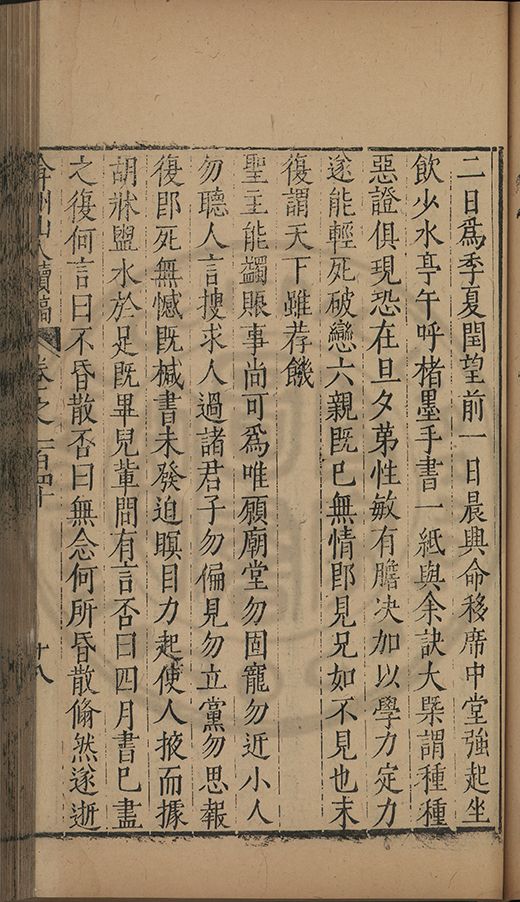 二日為季夏閏望前一日晨興命移席中堂強起坐
飲少水亭午呼楮墨手書一紙與余訣大槩謂種種
惡證俱現恐在旦夕弟性敏有膽决加以學力定力
遂能輕死破戀六親既已無情即見兄如不見也末
復謂天下雖荐饑
聖主能蠲賑事尚可為唯願廟堂勿固寵勿近小人
勿聽人言搜求人過諸君子勿偏見勿立黨勿思報
復即死無憾既椷書未發迫瞑目力起使人掖而據
胡牀盥水於足既畢兒輩問有言否曰四月書已盡
之復何言曰不昏散否曰無念何所昏散翛然遂逝
弇州山人續稿 卷之一百四十 十八